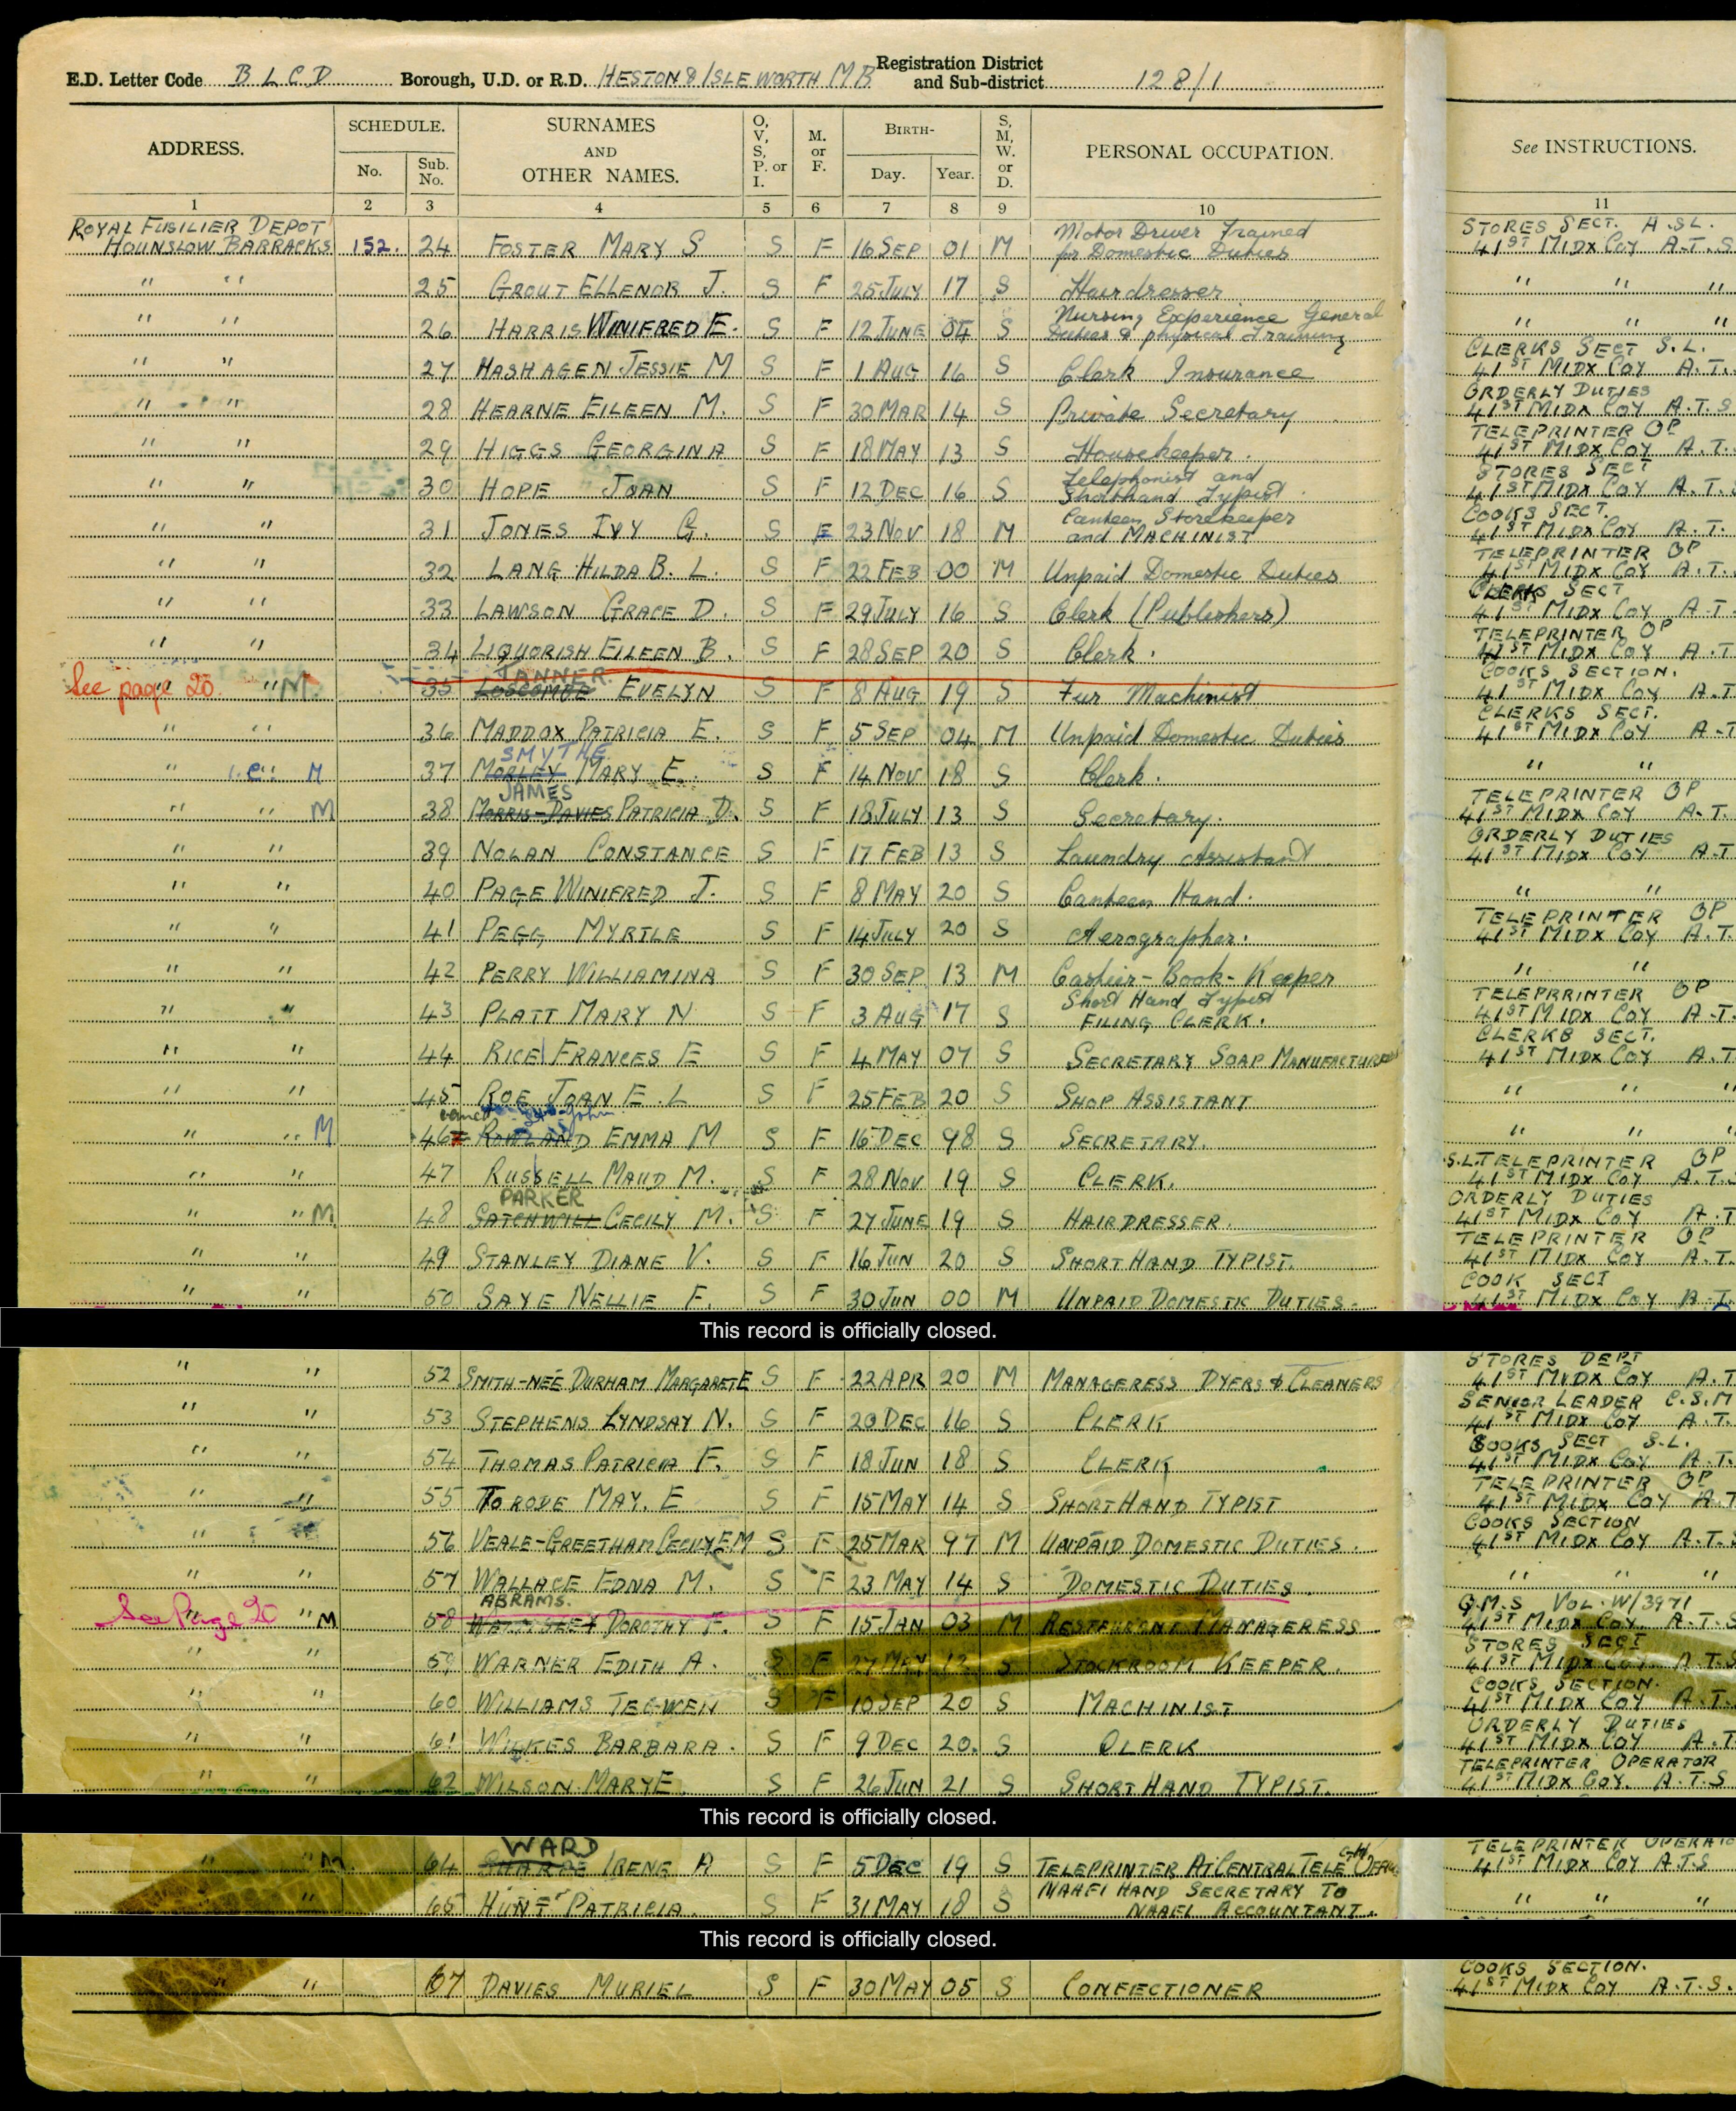 E.D. Letter Code B L C D Borough, U.D. or R.D. HESTON & ISLEWORTH M B Registration District and Sub-district 128/1
ADDRESS. SCHEDULE. No. Sub. No. SURNAMES AND OTHER NAMES. O, V, S, P. or I. M. or F. BIRTH- Day. Year. S, M, W. or D. PERSONAL OCCUPATION. See INSTRUCTIONS.
1 2 3 4 5 6 7 8 9 10 11
ROYAL FUSILIER DEPOT Motor Driver Trained STORES SECT. A.SL.
HOUNSLOW BARRACKS 152. 24 FOSTER MARY S S F 16 SEP 01 M for Domestic Duties 41ST MIDX COY A.T.S
" " 25 GROUT ELLENOR J. S F 25 JULY 17 S Hairdresser " " "
" " 26 HARRIS WINIFRED E. S F 12 JUNE 04 S Nursing Experience General Duties & physical Training " " "
CLERKS SECT S.L.
" " 27 HASHAGEN JESSIE M S F 1 AUG 16 S Clerk Insurance 41ST MIDX COY A.T.
ORDERLY DUTIES
" " 28 HEARNE EILEEN M. S F 30 MAR 14 S Private Secretary 41ST MIDX COY A.T.S
TELEPRINTER OP
" " 29 HIGGS GEORGINA S F 18 MAY 13 S Housekeeper. 41ST MIDX COY A.T.
Telephonist and STORES SECT
" " 30 HOPE JOAN S F 12 DEC 16 S Shorthand Typist. 41ST MIDX COY A.T.S
Canteen Storekeeper COOKS SECT.
" " 31 JONES IVY G. S F 23 NOV 18 M and MACHINIST 41ST MIDX COY A.T.
TELEPRINTER OP
" " 32 LANG HILDA B. L. S F 22 FEB 00 M Unpaid Domestic Duties 41ST MIDX COY A.T.
CLERKS SECT
" " 33 LAWSON GRACE D. S F 29 JULY 16 S Clerk (Publishers) 41ST MIDX COY A.T.
TELEPRINTER OP
" " 34 LIQUORISH EILEEN B. S F 28 SEP 20 S Clerk. 41ST MIDX COY A.T
TANNER COOKS SECTION.
See page 20 " " M. 35 LOSCOMBE EVELYN S F 8 AUG 19 S Fur Machinist 41ST MIDX COY A.T
CLERKS SECT.
" " 36 MADDOX PATRICIA E. S F 5 SEP 04 M Unpaid Domestic Duties 41ST MIDX COY A.T
SMYTHE
" " M 37 MORLEY MARY E. S F 14 NOV 18 S Clerk. " "
JAMES TELEPRINTER OP
" " M 38 MORRIS-DAVIES PATRICIA D. S F 18 JULY 13 S Secretary. 41ST MIDX COY A.T.
ORDERLY DUTIES
" " 39 NOLAN CONSTANCE S F 17 FEB 13 S Laundry Assistant 41ST MIDX COY A.T
" " 40 PAGE WINIFRED J. S F 8 MAY 20 S Canteen Hand. " "
TELEPRINTER OP
" " 41 PEGG MYRTLE S F 14 JULY 20 S Aerographer. 41ST MIDX COY A.T.
" " 42 PERRY WILLIAMINA S F 30 SEP 13 M Cashier-Book-Keeper " "
Short Hand Typist TELEPRRINTER OP
" " 43 PLATT MARY N S F 3 AUG 17 S FILING CLERK. 41ST MIDX COY A.T.
CLERKS SECT.
" " 44 RICE FRANCES E S F 4 MAY 07 S SECRETARY SOAP MANUFACTURERS 41ST MIDX COY A.T
" " 45 ROE JOAN E.L S F 25 FEB 20 S SHOP ASSISTANT " " "
" " M 46 ROWLAND EMMA M S F 16 DEC 98 S SECRETARY. " " "
S.L. TELEPRINTER OP
" " 47 RUSSELL MAUD M. S F 28 NOV 19 S CLERK. 41ST MIDX COY A.T.S
PARKER ORDERLY DUTIES
" " M 48 SATCHWILL CECILY M. S F 27 JUNE 19 S HAIRDRESSER. 41ST MIDX COY A.T
TELEPRINTER OP
" " 49 STANLEY DIANE V. S F 16 JUN 20 S SHORTHAND TYPIST. 41ST MIDX COY A.T.
COOK SECT
" " 50 SAYE NELLIE F. S F 30 JUN 00 M UNPAID DOMESTIC DUTIES. 41ST MIDX COY A.T.
This record is officially closed.
STORES DEPT
" " 52 SMITH-NEÉ DURHAM MARGARET E S F 22 APR 20 M MANAGERESS DYERS & CLEANERS 41ST MIDX COY A.T
SENIOR LEADER C.S.M
" " 53 STEPHENS LYNDSAY N. S F 20 DEC 16 S CLERK 41ST MIDX COY A.T.
COOKS SECT S.L.
" " 54 THOMAS PATRICIA F. S F 18 JUN 18 S CLERK 41ST MIDX COY A.T.
TELEPRINTER OP
" " 55 TORODE MAY. E S F 15 MAY 14 S SHORTHAND TYPIST 41ST MIDX COY A.T
COOKS SECTION
" " 56 VEALE-GREETHAM CECILY E.M S F 25 MAR 97 M UNPAID DOMESTIC DUTIES. 41ST MIDX COY A.T.S
" " 57 WALLACE EDNA M. S F 23 MAY 14 S DOMESTIC DUTIES. " " "
ABRAMS. Q.M.S VOL. W/3971
See Page 20 " " M 58 DOROTHY F. S F 15 JAN 03 M RESTAURANT MANAGERESS 41ST MIDX COY. A.T.S
STORES SECT
" " 59 WARNER EDITH A. S F 27 MAY 12 S STOCKROOM KEEPER. 41ST MIDX COY. A.T.S
COOKS SECTION.
" " 60 WILLIAMS TEGWEN S F 10 SEP 20 S MACHINIST 41ST MIDX COY A.T.
ORDERLY DUTIES
" " 61 WILKES BARBARA. S F 9 DEC 20. S CLERK 41ST MIDX COY A.T.
TELEPRINTER OPERATOR
" " 62 WILSON MARY E. S F 26 JUN 21 S SHORTHAND TYPIST. 41ST MIDX COY. A.T.S
This record is officially closed.
WARD TELEPRINTER OPERATO
" " M. 64 SHARPE IRENE A S F 5 DEC 19 S TELEPRINTER AT CENTRAL TELE 41ST MIDX COY A.T.S
NAAFI HAND SECRETARY TO
" " 65 HUNT PATRICIA. S F 31 MAY 18 S NAAFI ACCOUNTANT. " " "
This record is officially closed.
COOKS SECTION.
" " 67 DAVIES MURIEL S F 30 MAY 05 S CONFECTIONER 41ST MIDX COY A.T.S.